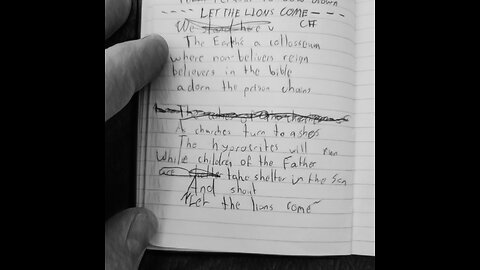 - - - - LET THE LIONS COME - - - -
We stand here
The Earth's a collosseum
where non-belivers reign
believers in the bible
adorn the prison chains
A churches turn to ashes
The hypocrites will run
While children of the Father
take shelter in the Son
And shout
"Let the lions come"